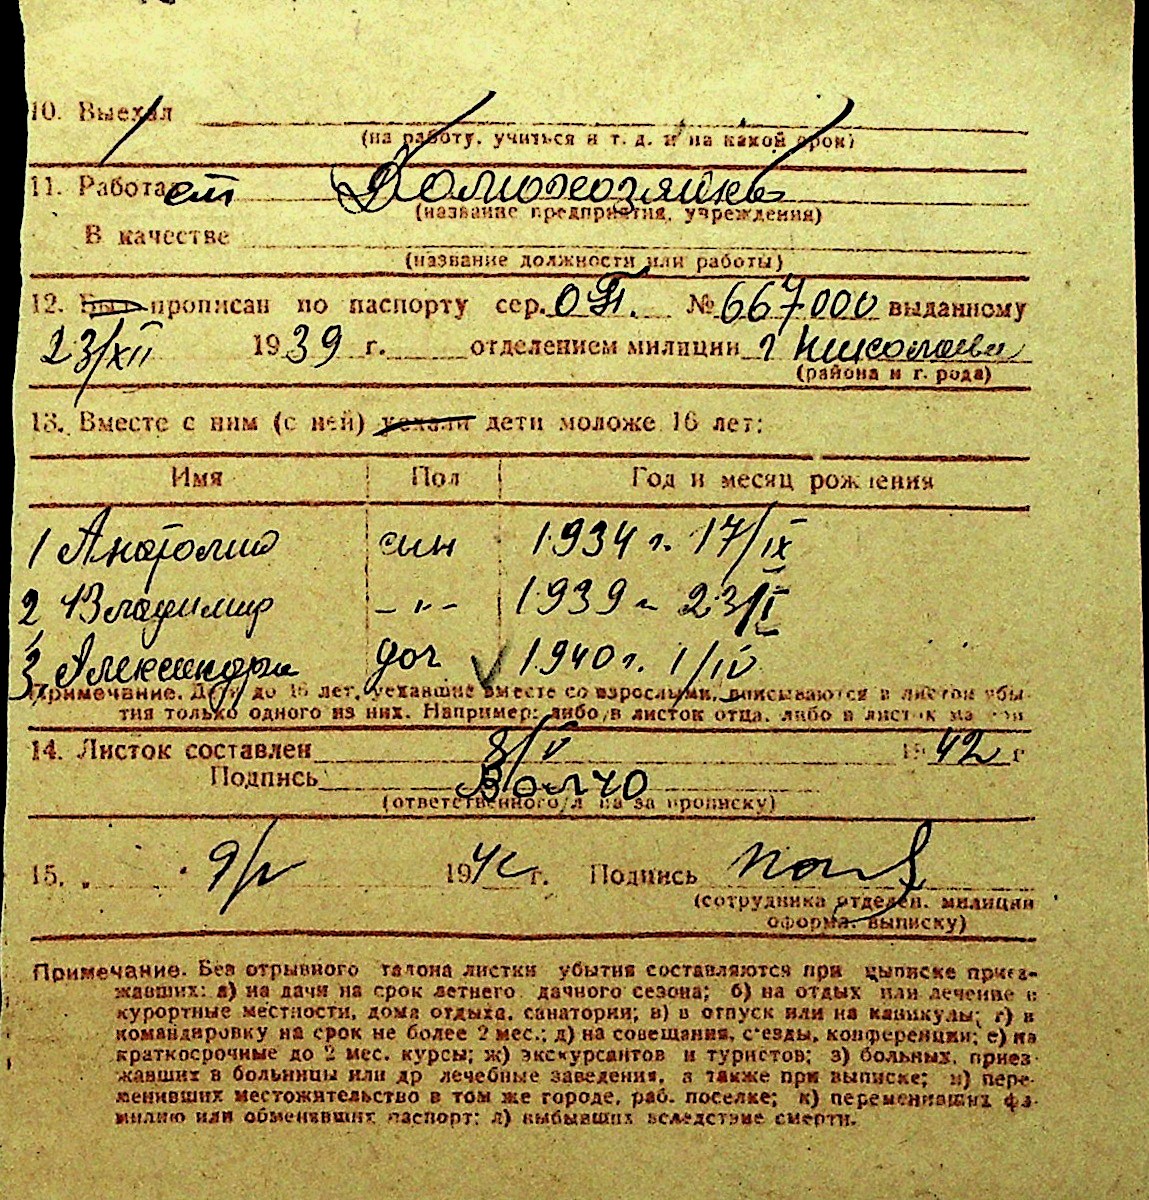 10. Выехал
(на работу, учиться и т. д. и на какой срок)
11. Работает Домохозяйка
(название предприятия, учреждения)
В качестве
(название должности или работы)
12. Был прописан по паспорту сер. ОП. № 667000 выданному
23/XII 1939 г. отделением милиции г Николаева
(района и г. рода)
13. Вместе с ним (с ней) уехали дети моложе 16 лет:
Имя Пол Год и месяц рождения
1 Анатолий син 1934 г. 17/IX
2 Владимир –"– 1939 г 23/I
3. Александра доч 1940 г. 1/IV
Примечание. Дети до 16 лет, уехавшие вместе со взрослыми, вписываются в листок убы-
тия только одного из них. Например: либо в листок отца, либо в листок матери
14. Листок составлен 8/V 1942 г
Подпись Волчо
(ответственного л на за прописку)
15. 9/V 1942 г. Подпись
(сотрудника отделен. милиции
оформл. выписку)
Примечание. Без отрывного талона листки убытия составляются при выписке приез-
жавших: а) на дачи на срок летнего дачного сезона; б) на отдых или лечение в
курортные местности, дома отдыха, санатории; в) в отпуск или на каникулы; г) в
командировку на срок не более 2 мес.; д) на совещания, с'езды, конференции; е) на
краткосрочные до 2 мес. курсы; ж) экскурсантов и туристов; з) больных, приез-
жавших в больницы или др лечебные заведения, а также при выписке; и) пере-
менивших местожительство в том же городе, раб. поселке; к) переменивших фа-
милию или обменявших паспорт; л) выбывших вследствие смерти.